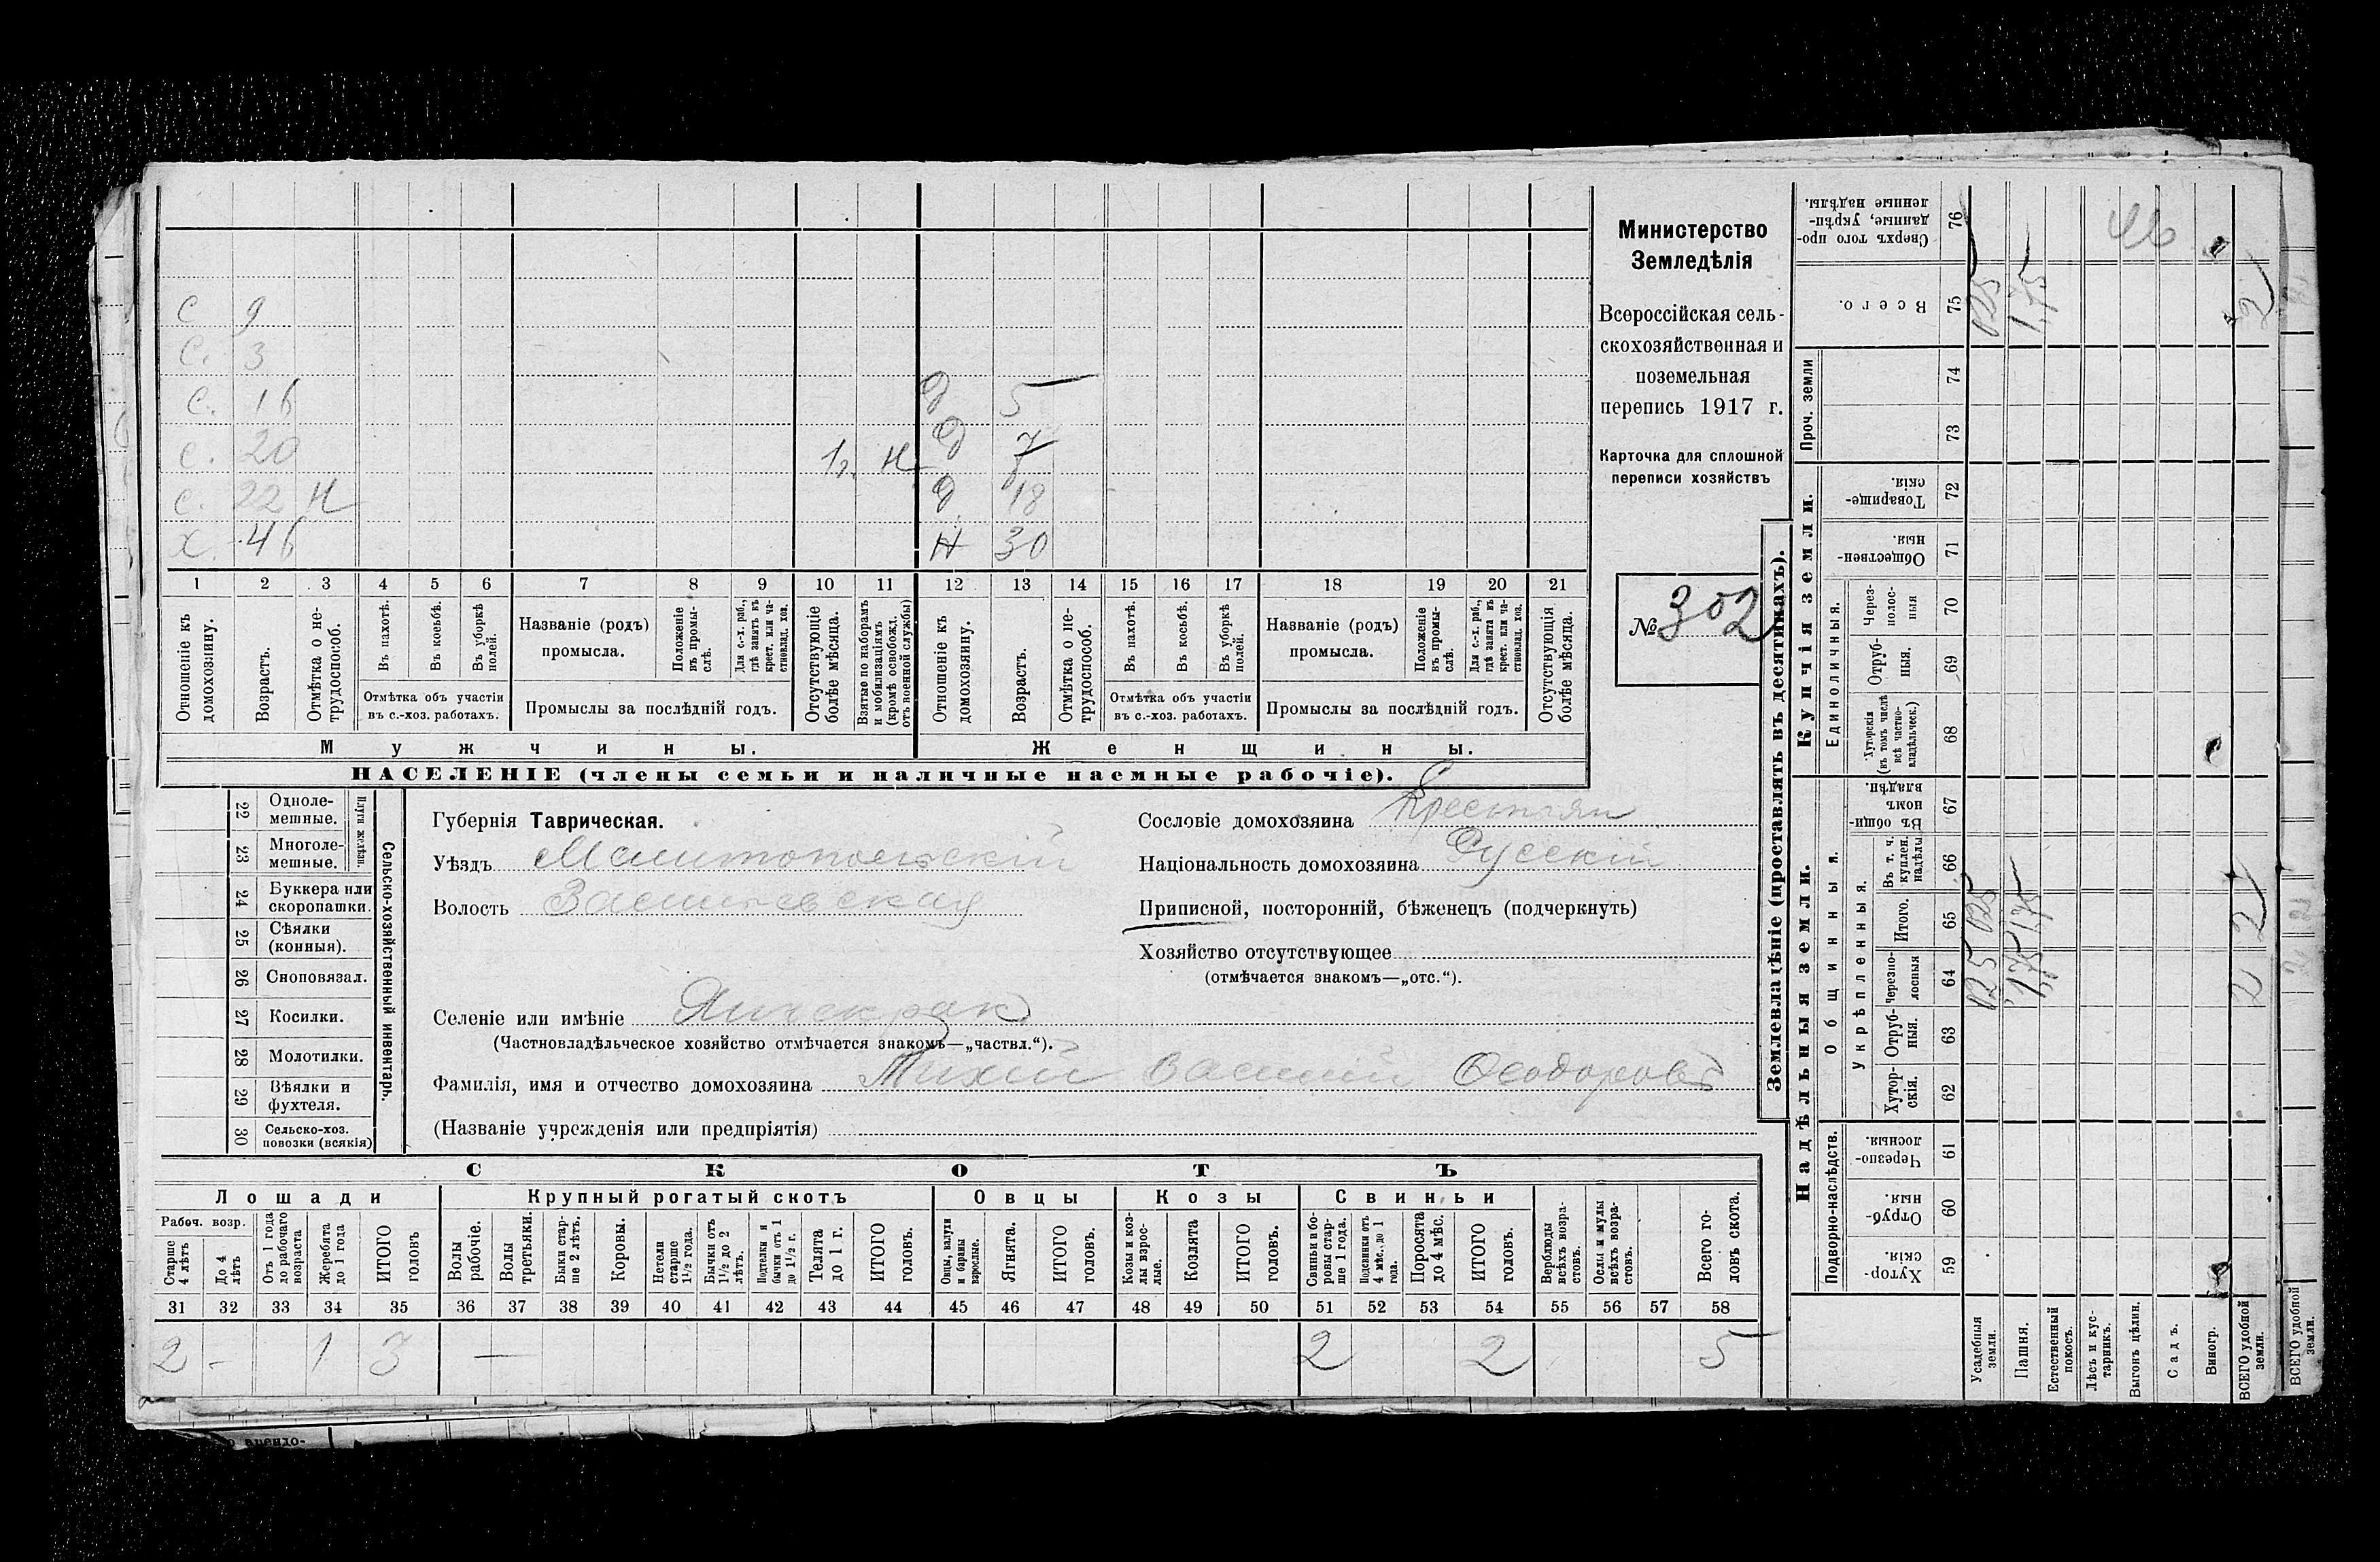 Министерство
Земледѣлія
Всероссійская сель-
скохозяйственная и
поземельная
перепись 1917 г.
Карточка для сплошной
переписи хозяйствъ
№ 302
С 9
С. 3
С. 16 Д 5
С. 20 Д 7
С. 22 Н Д 18
Х. 46 Н 30
1 2 3 4 5 6 7 8 9 10 11 12 13 14 15 16 17 18 19 20 21
Отношеніе къ домохозяину.
Возрастъ.
Отмѣтка о не-трудоспособ.
Въ пахотѣ.
Въ косьбѣ.
Въ уборкѣ полей.
Отмѣтка объ участіи
въ с.-хоз. работахъ.
Названіе (родъ)
промысла.
Положеніе въ промы-слѣ.
Для с.-х. раб., гдѣ занятъ въ крест. или ча-стновлад. хоз.
Промыслы за послѣдній годъ.
Отсутствующіе болѣе мѣсяца.
Взятые по наборамъ и мобилизаціямъ (кромѣ освобожд. отъ военной службы)
Отношеніе къ домохозяину.
Возрастъ.
Отмѣтка о не-трудоспособ.
Въ пахотѣ.
Въ косьбѣ.
Въ уборкѣ полей.
Отмѣтка объ участіи
въ с.-хоз. работахъ.
Названіе (родъ)
промысла.
Положеніе въ промы-слѣ.
Для с.-х. раб., гдѣ занята въ крест. или ча-стновлад. хоз.
Промыслы за послѣдній годъ.
Отсутствующія болѣе мѣсяца.
Мужчины.
Женщины.
НАСЕЛЕНІЕ (члены семьи и наличные наемные рабочіе).
Сельско-хозяйственный инвентарь.
Плуги желѣзн.
22 Одноле-мешные.
23 Многоле-мешные.
24 Буккера или скоропашки.
25 Сѣялки (конныя).
26 Сноповязал.
27 Косилки.
28 Молотилки.
29 Вѣялки и фухтеля.
30 Сельско-хоз. повозки (всякія)
Губернія Таврическая.
Уѣздъ Мелитопольскій
Волость Васильевская
Селеніе или имѣніе Янчекрак
(Частновладѣльческое хозяйство отмѣчается знакомъ—„частвл.“).
Фамилія, имя и отчество домохозяина Михай Василій Ѳеодоровъ
(Названіе учрежденія или предпріятія)
Сословіе домохозяина Крестьян
Національность домохозяина Русскій
Приписной, посторонній, бѣженецъ (подчеркнуть)
Хозяйство отсутствующее
(отмѣчается знакомъ—„отс.“).
СКОТЪ
Лошади
Крупный рогатый скотъ
Овцы
Козы
Свиньи
Рабоч. возр.
Старше 4 лѣтъ
До 4 лѣтъ
Отъ 1 года до рабочаго возраста
Жеребята до 1 года
ИТОГО головъ
Волы рабочіе.
Волы третьяки.
Быки стар-ше 2 лѣтъ.
Коровы.
Нетели старше 1½ года.
Бычки отъ 1½ до 2 лѣтъ.
Подтелки и бычки отъ 1 до 1½ г.
Телята до 1 г.
ИТОГО головъ.
Овцы, валухи и бараны взрослые.
Ягнята.
ИТОГО головъ.
Козы и коз-лы взрос-лые.
Козлята
ИТОГО головъ.
Свиньи и бо-ровы стар-ше 1 года.
Подсвинки отъ 4 мѣс., до 1 года.
Поросята до 4 мѣс.
ИТОГО головъ.
Верблюды всѣхъ возра-стовъ.
Ослы и мулы всѣхъ возра-стовъ.
Всего го-ловъ скота.
31 32 33 34 35 36 37 38 39 40 41 42 43 44 45 46 47 48 49 50 51 52 53 54 55 56 57 58
2 - 1 3 — 2 2 5
Землевладѣніе (проставлять въ десятинахъ).
Купчія земли.
Надѣльныя земли.
Сверхъ того про-данные, укрѣп-ленные надѣлы. 76
Всего. 75
Проч. земли
74
73
Товарище-скія. 72
Обществен-ныя. 71
Единоличныя.
Через-полос-ныя 70
Отруб-ныя. 69
Хуторскія (въ томъ числѣ всѣ частно-владѣльческ.) 68
Общинныя.
Въ общи-номъ владѣн. 67
Укрѣпленныя.
Въ т. ч. куплен. надѣлы 66
Итого. 65
Черезпо-лосныя 64
Отруб-ныя. 63
Хутор-скія. 62
Подворно-наслѣдств.
Черезпо-лосныя. 61
Отруб-ныя. 60
Хутор-скія. 59
Усадебныя земли.
Пашня.
Естественный покосъ.
Лѣсъ и кус-тарникъ.
Выгонъ цѣлин.
Садъ.
Виногр.
ВСЕГО удобной земли.
ВСЕГО удобной земли.
46
025 1,75 2
025 1,75 2
025 1,75 2